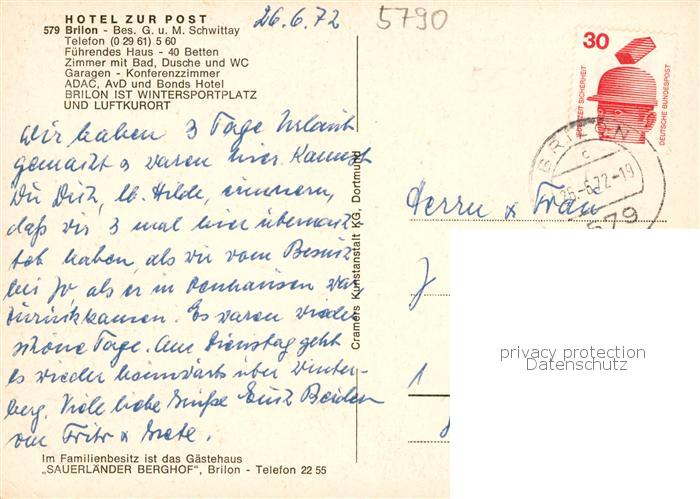 HOTEL ZUR POST
579 Brilon - Bes. G. u. M. Schwittay
Telefon (0 29 61) 5 60
Führendes Haus - 40 Betten
Zimmer mit Bad, Dusche und WC
Garagen - Konferenzzimmer
ADAC, AvD und Bonds Hotel
BRILON IST WINTERSPORTPLATZ
UND LUFTKURORT
26.6.72
5790
Wir haben 3 Tage Urlaub
gemacht & waren hier. Kannst
Du Dich, lb. Hilde, erinnern,
daß wir 3 mal hier übernach-
tet haben, als wir vom Besuch
bei Jo, als er in war
zurückkamen. Es waren wieder
schöne Tage. Am Dienstag geht
es wieder heimwärts über Winter-
berg. Viele liebe Grüße Euch Beiden
von Fritz & Grete.
Im Familienbesitz ist das Gästehaus
„SAUERLÄNDER BERGHOF", Brilon - Telefon 22 55
Cramers Kunstanstalt KG, Dortmund
30
JEDERZEIT SICHERHEIT
DEUTSCHE BUNDESPOST
BRILON
c
26.-6.72-19
579
Herrn & Frau
J
1
privacy protection
Datenschutz